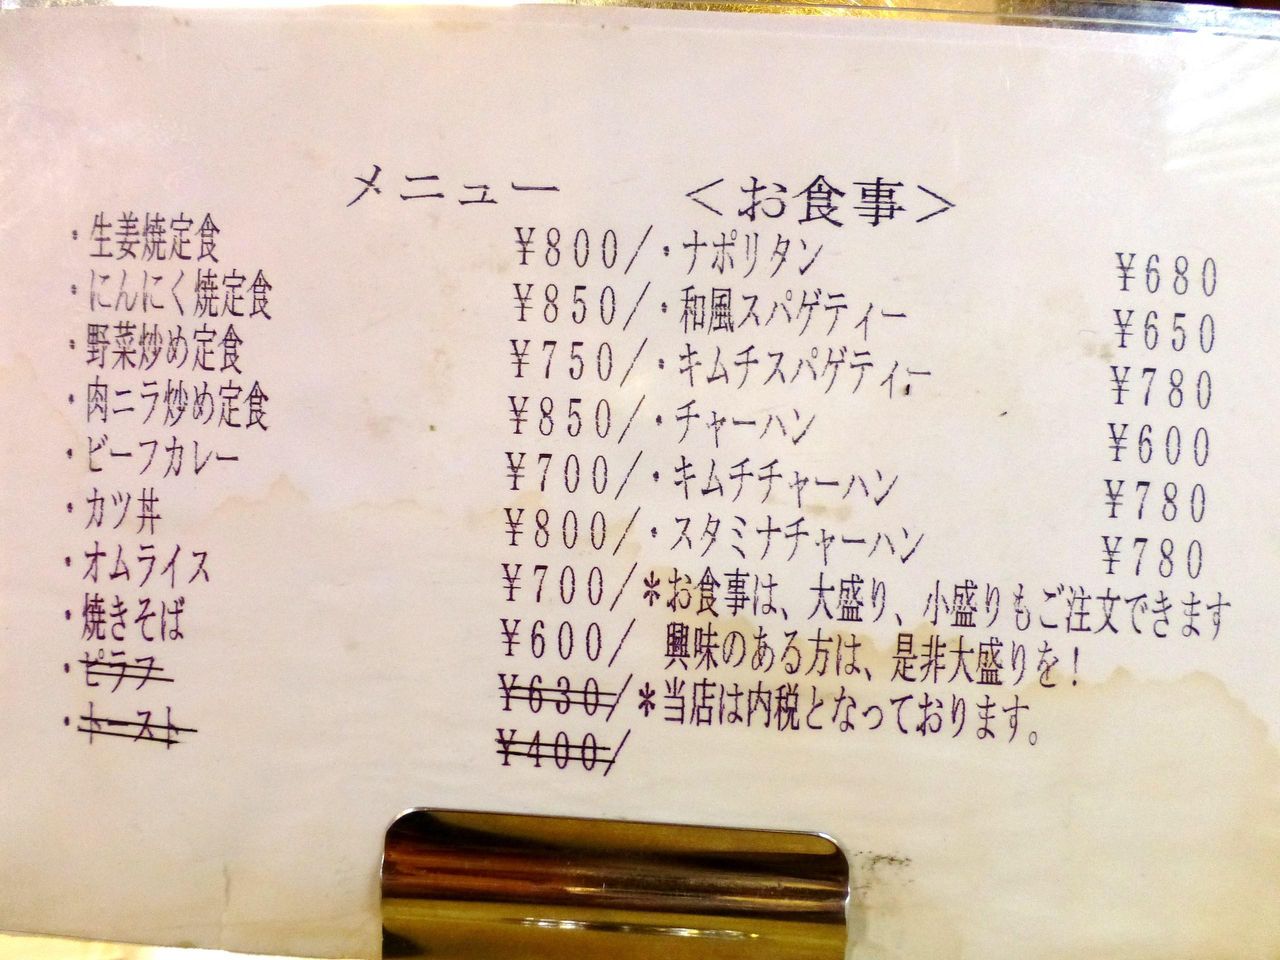 メニュー ＜お食事＞
・生姜焼定食 ¥800/・ナポリタン ¥680
・にんにく焼定食 ¥850/・和風スパゲティー ¥650
・野菜炒め定食 ¥750/・キムチスパゲティー ¥780
・肉ニラ炒め定食 ¥850/・チャーハン ¥600
・ビーフカレー ¥700/・キムチチャーハン ¥780
・カツ丼 ¥800/・スタミナチャーハン ¥780
・オムライス ¥700/＊お食事は、大盛り、小盛りもご注文できます
・焼きそば ¥600/ 興味のある方は、是非大盛りを！
・ピラフ ¥630/＊当店は内税となっております。
・トースト ¥400/